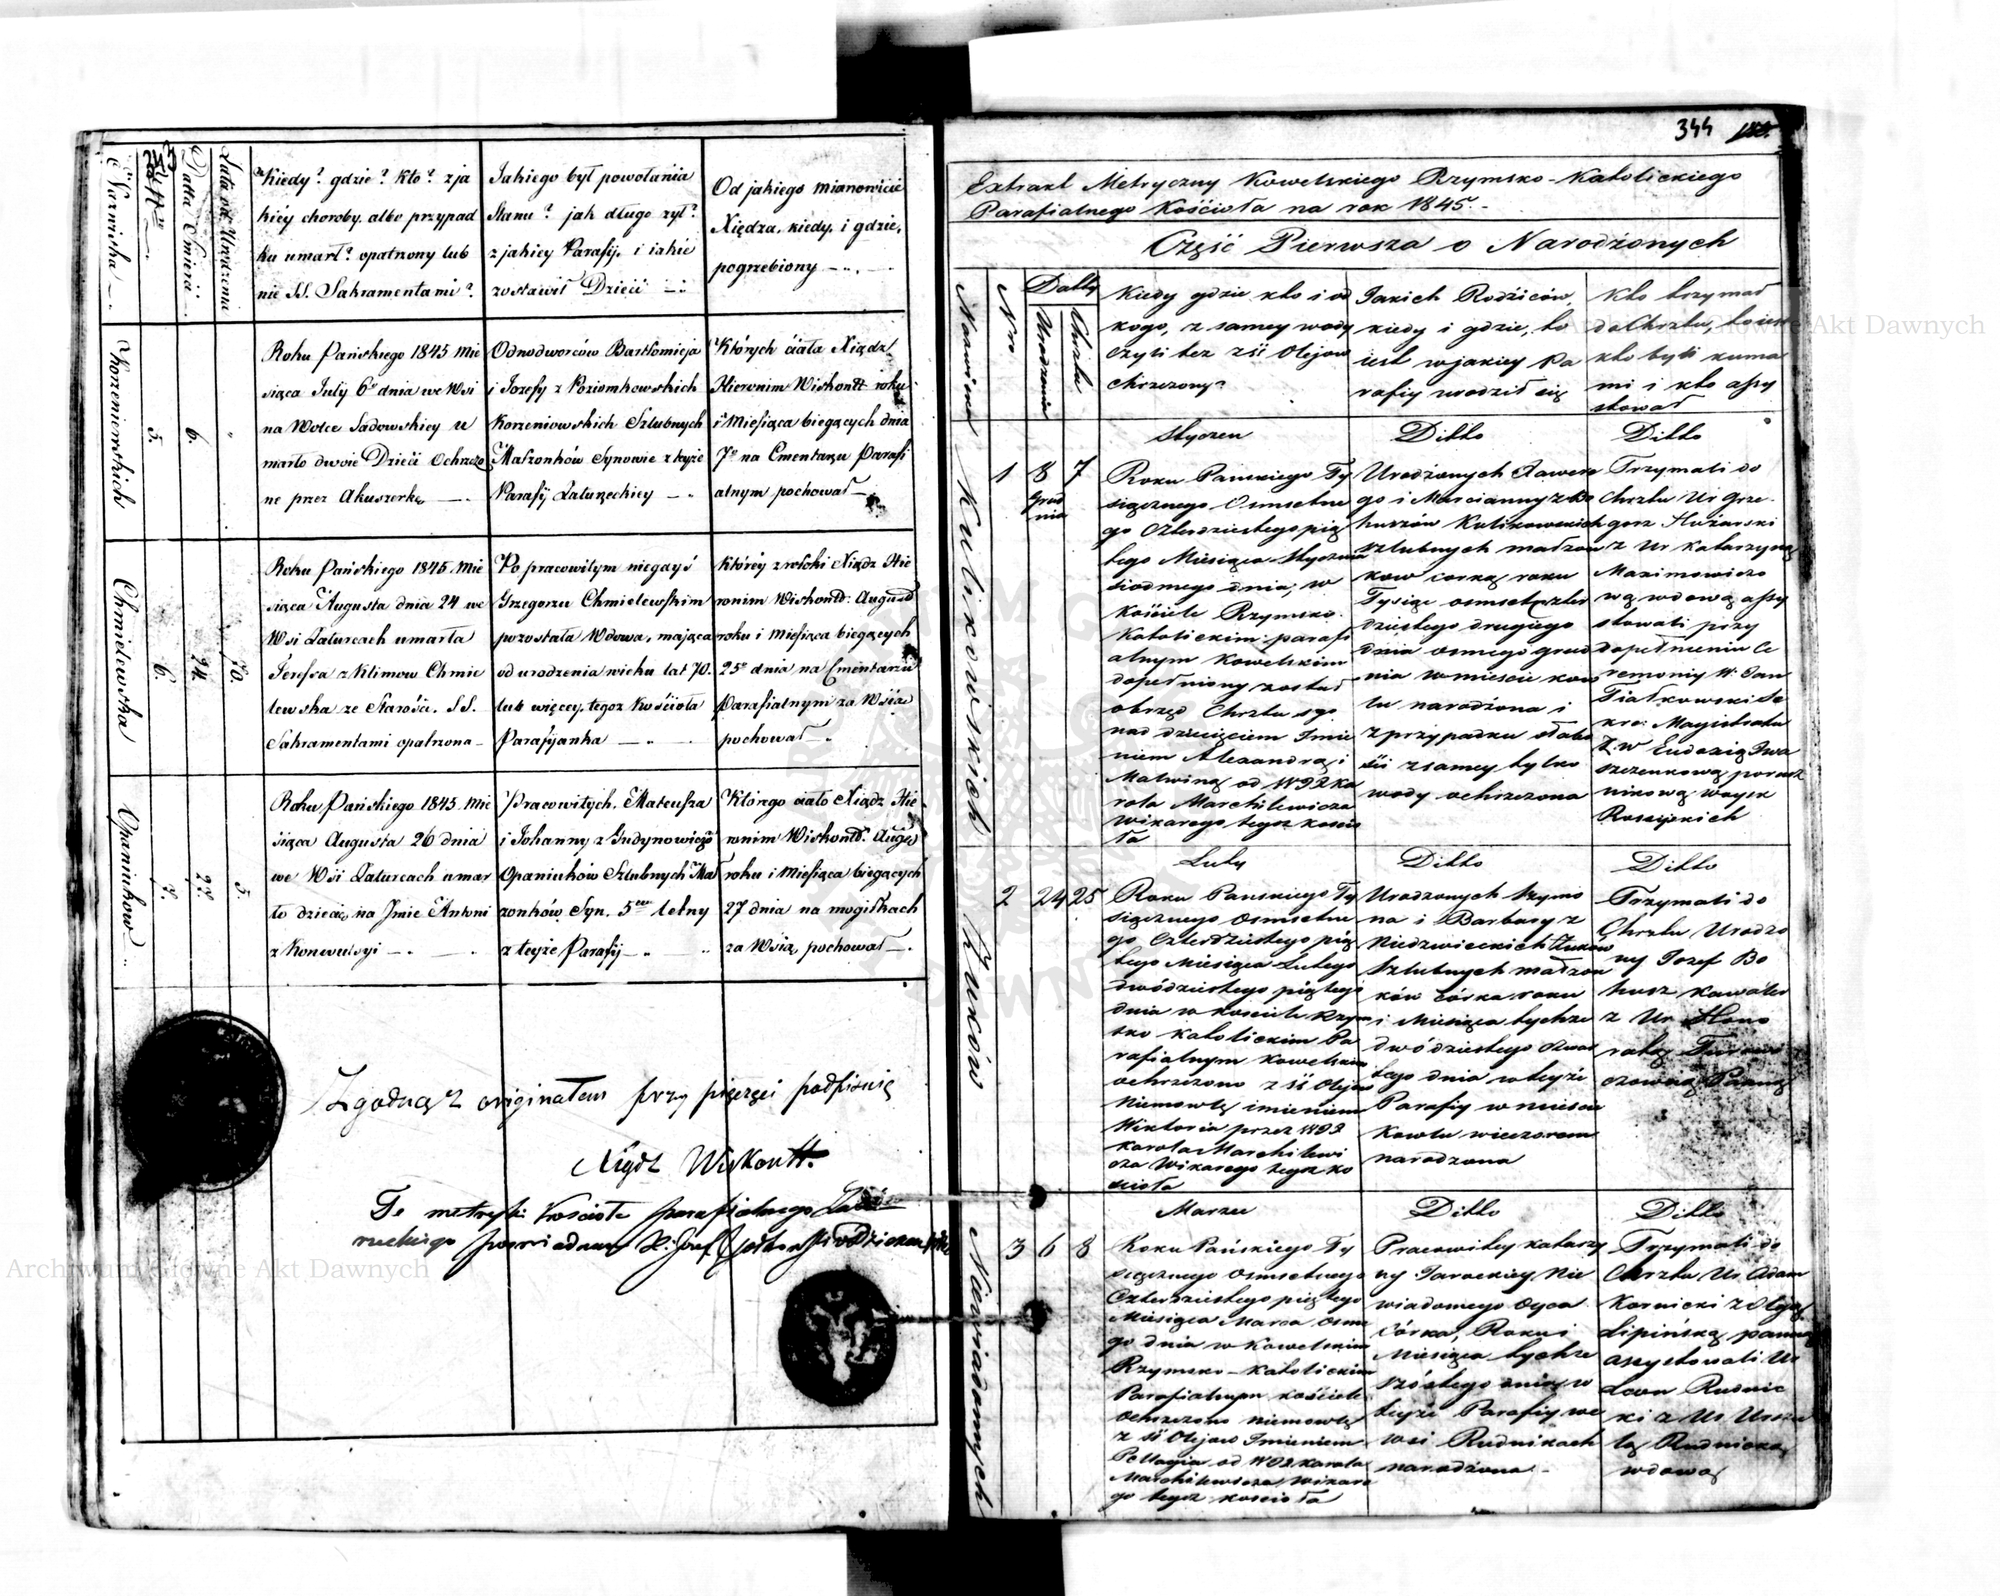 Nazwiska
Datta Śmierci
Lata od Urodzenia
Kiedy? gdzie? kto? z ja
kiéy choroby, albo przypad
ku umarł? opatrzony lub
nie SS. Sakramentami?
Jakiego był powołania
Stanu? jak długo żył?
z jakiey Parafij, i iakie
zostawił Dzieci
Od jakiego mianowicie
Xiędza, kiedy, i gdzie,
pogrzebiony
Korzeniewskich
5.
6.
Roku Pańskiego 1845 Mie
siąca July 6º dnia we Wsi
na Wolce Sadowskiey u
marło dwoie Dzieci Ochrzczo
ne przez Akuszerkę
Odnodworców Bartłomieja
i Jozefy z Poziomkowskich
Korzeniowskich Szlubnych
Małżonków Synowie z teyże
Parafij Zaturzeckiey
Których ciała Xiądz
Hieronim Wiskontt roku
i Miesiąca bieguących dnia
7º na Cmentarzu Parafi
alnym pochował
Chmielewska
6.
24.
70.
Roku Pańskiego 1845. Mie
siąca Augusta dnia 24 we
Wsi Zaturcach umarła
Teressa z Klimow Chmie
lewska ze Starości. SS.
Sakramentami opatrzona
Po pracowitym niegdyś
Grzegorzu Chmielewskim
pozostała Wdowa, mająca
od urodzenia wieku lat 70.
lub więcey, tegoż Kościoła
Parafijanka
Któréy zwłoki Xiądz Hie
ronim Wiskontt: August
roku i Miesiąca bieguących
25º dnia na Cmentarzu
Parafialnym za Wsią
pochował
Opaniuków
7.
27.
5.
Roku Pańskiego 1845. Mie
siąca Augusta 26 dnia
we Wsi Zaturcach umar
ło dziecię na Jmie Antoni
z Konwulsyi
Pracowitych, Mateusza
i Johanny z Gudynowiczów
Opaniuków Szlubnych Mał
żonków Syn. 5cio letny
z teyże Parafij
Którego ciało Xiądz Hie
ronim Wiskontt: Augus
roku i Miesiąca bieguących
27 dnia na mogiłkach
za Wsią, pochował
Zgodną z originałem przy pięczęci podpisuię
Xiądz Wiskontt.
Te metryki Kościoła parafialnego
344
Extrakt Metryczny Kowelskiego Rzymsko-Katolickiego
Parafialnego Kościoła na rok 1845.
Część Pierwsza o Narodzonych
Nazwiska
Nro
Datty
Urodzenia
Chrztu
Kiedy gdzie kto i od
kogo, z samey wody
czyli tez z śś Olejow
chrzczony?
Jakich Rodziców,
kiedy i gdzie, to
iest w jakiey Pa
rafiy urodził się
Kto trzymał
do Chrztu, to iest
kto byli kuma
mi i kto assy
stował
Kulikowskich
1
8
Grud
nia
7
Styczen
Roku Panskiego Ty
siącznego Osmsetne
go Czterdziestego pią
tego Miesiąca Stycznia
siodmego dnia, w
Kościele Rzymsko
Katolickim parafi
alnym Kowelskim
dopełniony został
obrzęd Chrztu sgo
nad dziecięciem Imie
niem Alexandrą i
Malwiną od WJXka
rola Marchilewicza
wikarego tegoz koscio
ła
Ditto
Urodzonych Xawere
go i Marcianny z Bo
huszów Kulikowskich
szlubnych małzon
kow corka roku
Tysiąc osmset czter
dziestego drugiego
dnia osmego grud
nia w mieście Kow
lu narodzona i
z przypadku słabo
ści z samey tylko
wody ochrzczona
Ditto
Trzymali do
Chrztu Ur Grze
gorz Huzarski
z Ur Katarzyną
Maximowiczo
wą wdową assy
stowali przy
dopełnieniu Ce
remoniy W. Jan
Fiałkowski Se
kre: Magistratu
z W Eudoxią Iwa
szczenkową porucz
nikową woysk
Rossyiskich
Żuków
2
24
25
Luty
Roku Panskiego Ty
siącznego Osmsetne
go Czterdziestego pią
tego Miesiąca Lutego
dwódziestego piątego
dnia w kosciele Rzym
sko katolickim Pa
rafialnym Kowelskim
ochrzczono z śś Olejow
Niemowlę imieniem
Wiktoria przez WJX
Karola Marchilewi
cza Wikarego tegoz ko
scioła
Ditto
Urodzonych Szymo
na i Barbary z
Niedzwieckich Żuków
Szlubnych małzon
ków córka roku
i Miesiąca tychże
dwódziestego czwar
tego dnia w teyże
Parafiy w miescie
Kowlu wieczorem
narodzona
Ditto
Trzymali do
Chrztu Urodzo
ny Jozef Bo
husz kawaler
z Ur Hono
ratą
Panną
Niewiadomych
3
6
8
Marzec
Roku Pańskiego Ty
siącznego Osmsetnego
Czterdziestego piątego
Miesiąca Marca Osme
go dnia w Kowelskim
Rzymsko-Katolickim
Parafialnym kościele
Ochrzczono niemowlę
z śś Olejow Imieniem
Pellagia od WJX Karola
Marchilewicza Wikare
go tegoz koscioła
Ditto
Pracowitey Katarzy
ny Taraskiey Nie
wiadomego Oyca
Córka, Roku i
Miesiąca tychże
szóstego dnia w
teyże Parafiy we
wsi Rudnikach
narodzona
Ditto
Trzymali do
Chrztu Ur Adam
Karnicki z Olgą
Lipińską panną
assystowali Ur
Leon Rudnic
ki z Ur Urszu
lą Rudnicką
wdową
Archiwum Główne Akt Dawnych
Archiwum Główne Akt Dawnych